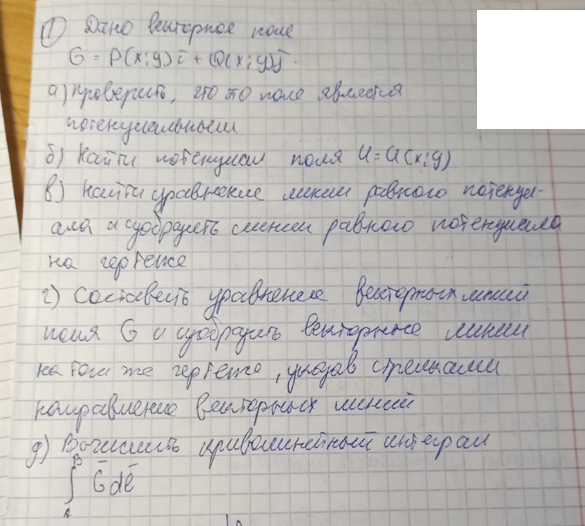 ① Дано векторное поле
G = P(x;y)i + Q(x;y)j.
а) Проверить, что это поле является
потенциальным
б) Найти потенциал поля U=U(x;y)
в) Найти уравнение линии равного потенци-
ала и изобразить линии равного потенциала
на чертеже
г) Составить уравнение векторных линий
поля G и изобразить векторные линии
на том же чертеже, указав стрелками
направление векторных линий
д) Вычислить криволинейный интеграл
B
∫ G̅dℓ̅
A